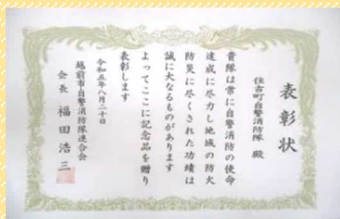 表彰状
住吉町自警消防隊 殿
貴隊は常に自警消防の使命
達成に尽力し地域の防火
防災に尽くされた功績は
誠に大なるものがあります
よってここに記念品を贈り
表彰します
令和五年八月二十日
越前市自警消防隊連合会
会長 福田浩三